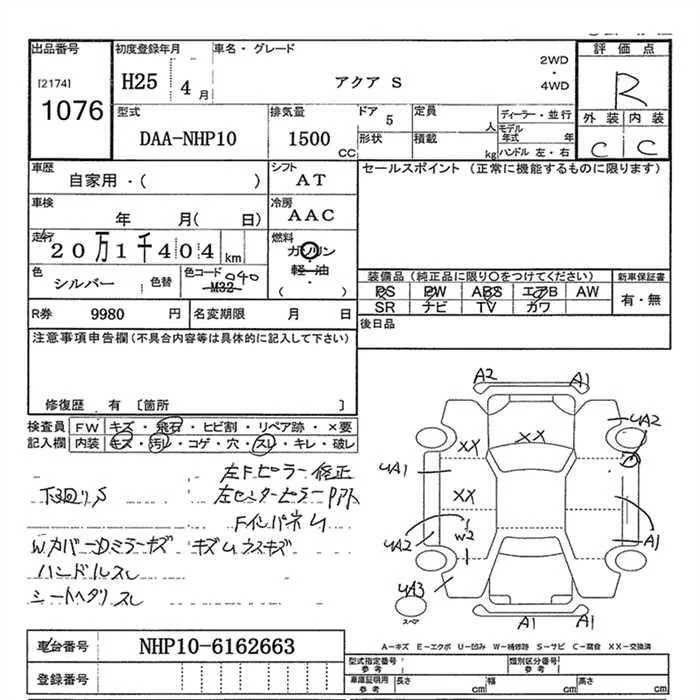 出品番号 初度登録年月 車名・グレード 評価点
[2174] 1076 H25 4月 アクア S 2WD・4WD R
型式 排気量 ドア 定員 ディーラー・並行 外装 内装
DAA-NHP10 1500 CC 5 人 モデル年式 年 C C
形状 積載 kg ハンドル 左・右
車歴 シフト セールスポイント (正常に機能するものに限ります)
自家用・( ) AT
車検 冷房
年 月( 日) AAC
走行 燃料
20万1千404 km ガソリン・軽油・( )
色 シルバー 色替 色コード 040 M32
装備品 (純正品に限り○をつけてください) 新車保証書
PS PW ABS エアB AW 有・無
SR ナビ TV カワ
R券 9980 円 名変期限 月 日 後日品
注意事項申告欄 (不具合内容等は具体的に記入して下さい)
修復歴 有 [箇所 ]
検査員 FW キズ・飛石・ヒビ割・リペア跡・×要
記入欄 内装 キズ・汚レ・コゲ・穴・スレ・キレ・破レ
左Fピラー修正
下廻りS 左センターピラー
Fインパネム
Wカバー ミラーキズ
ハンドルスレ
シートヘタリスレ
A2 A1
UA2
XX XX
UA1
XX
W2
UA2 A1
UA3
スペア
A1 A1
A-キズ E-エクボ U-凹み W-補修跡 S-サビ C-腐食 XX-交換済
車台番号 NHP10-6162663
型式指定番号 参考 類別区分番号 参考
登録番号 車庫証明用 参考 長さ cm 幅 cm 高さ cm